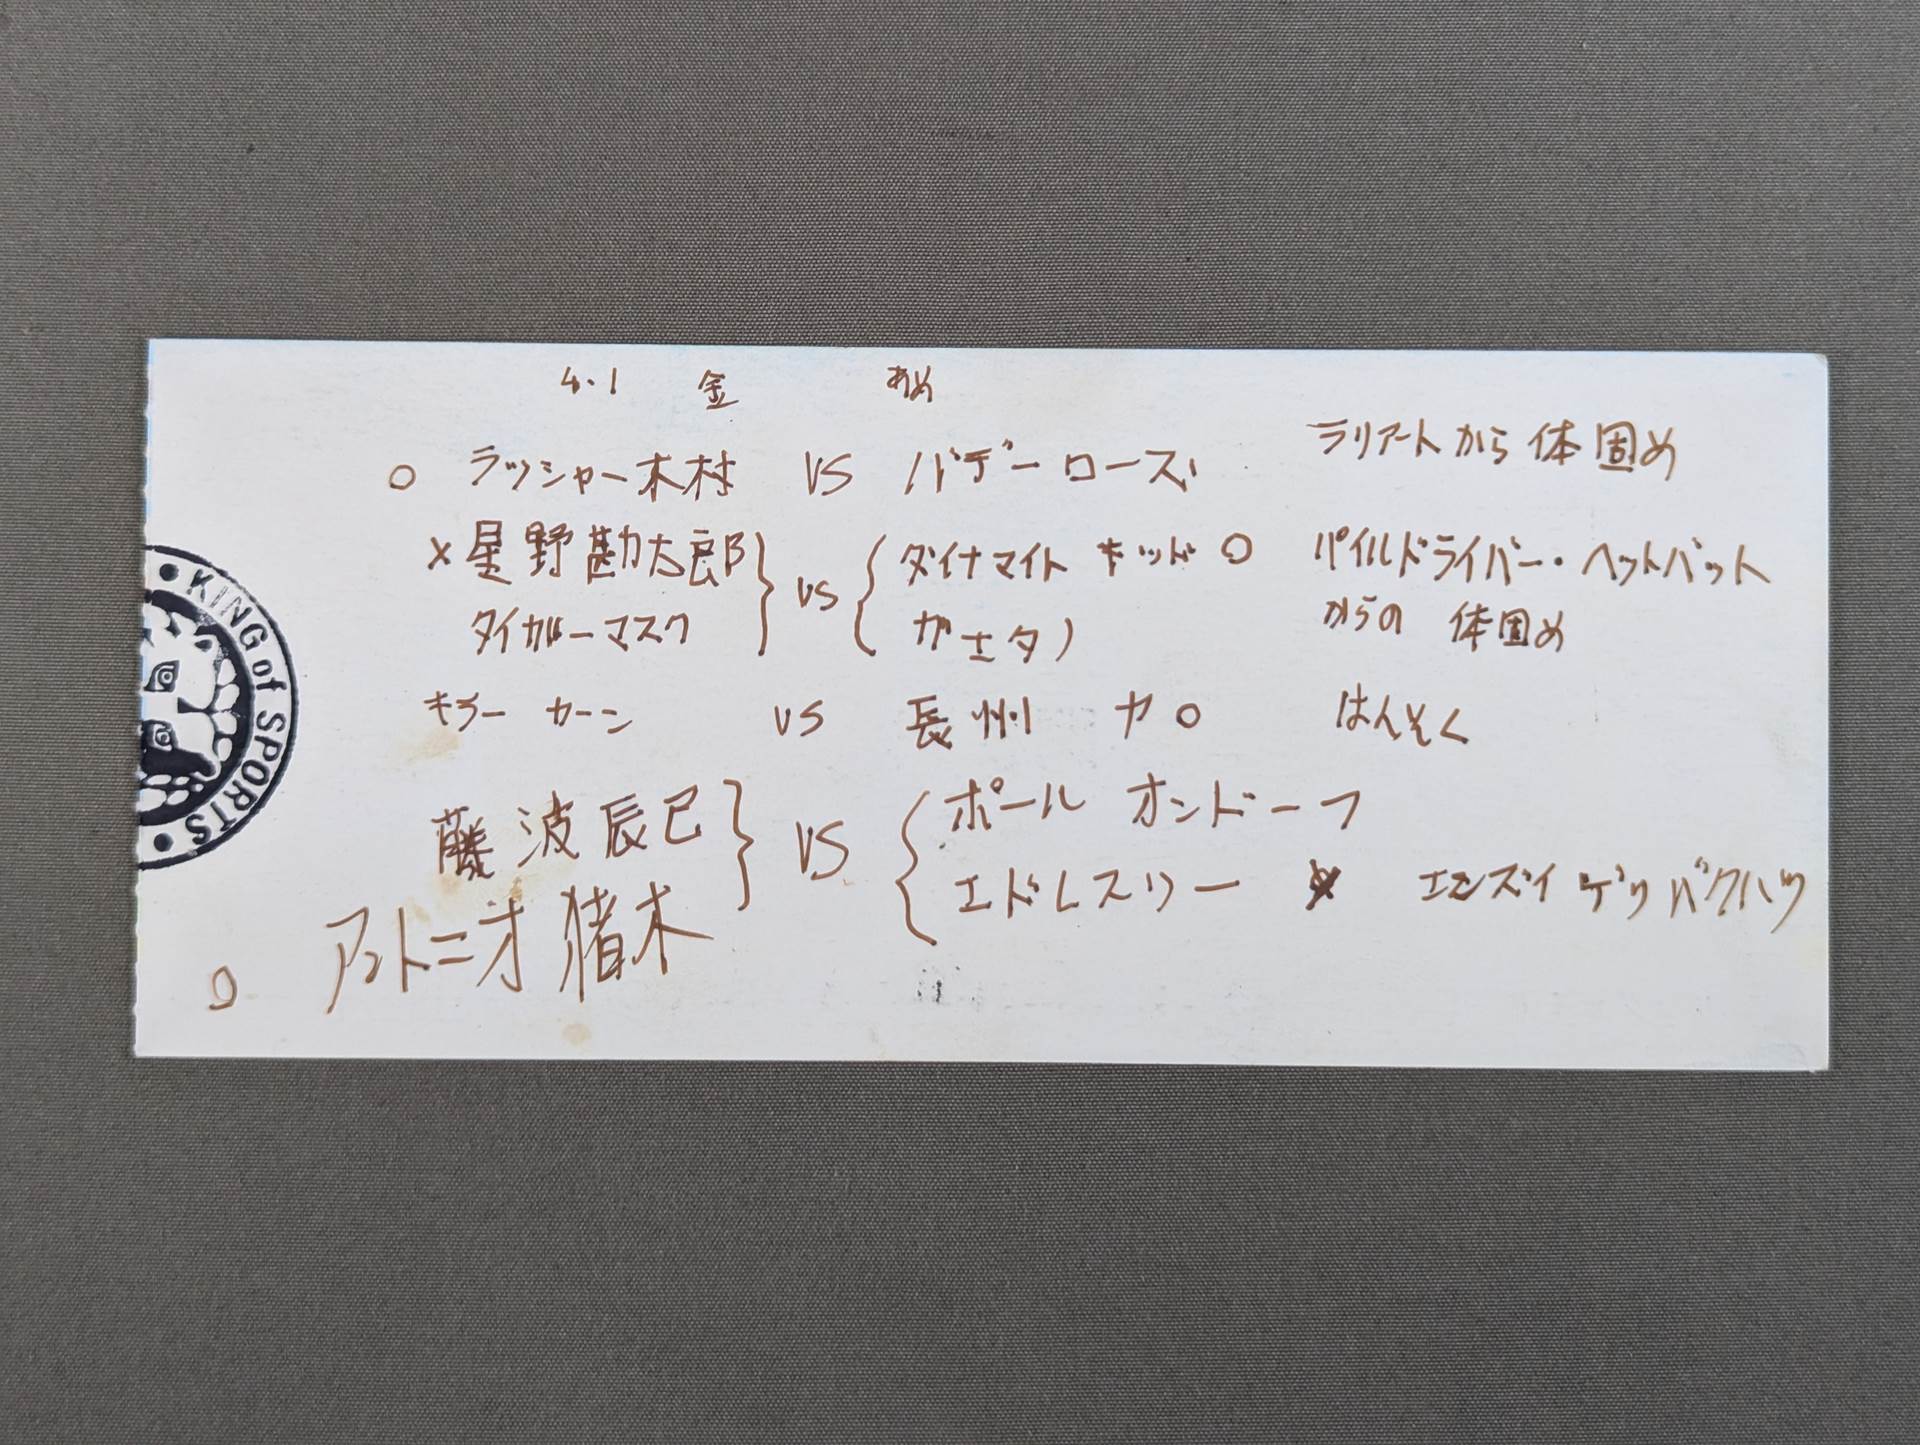 4.1 金 あめ
○ ラッシャー木村 VS バデーローズ ラリアートから体固め
×星野勘太郎 VS ダイナマイト キッド ○ パイルドライバー・ヘットバット
タイガーマスク ガエタノ からの 体固め
キラー カーン VS 長州 力 ○ はんそく
藤波辰巳 VS ポール オンドーフ
○ アントニオ猪木 エドレスリー × エンズイ ゲリ バクハツ
• KING of SPORTS •